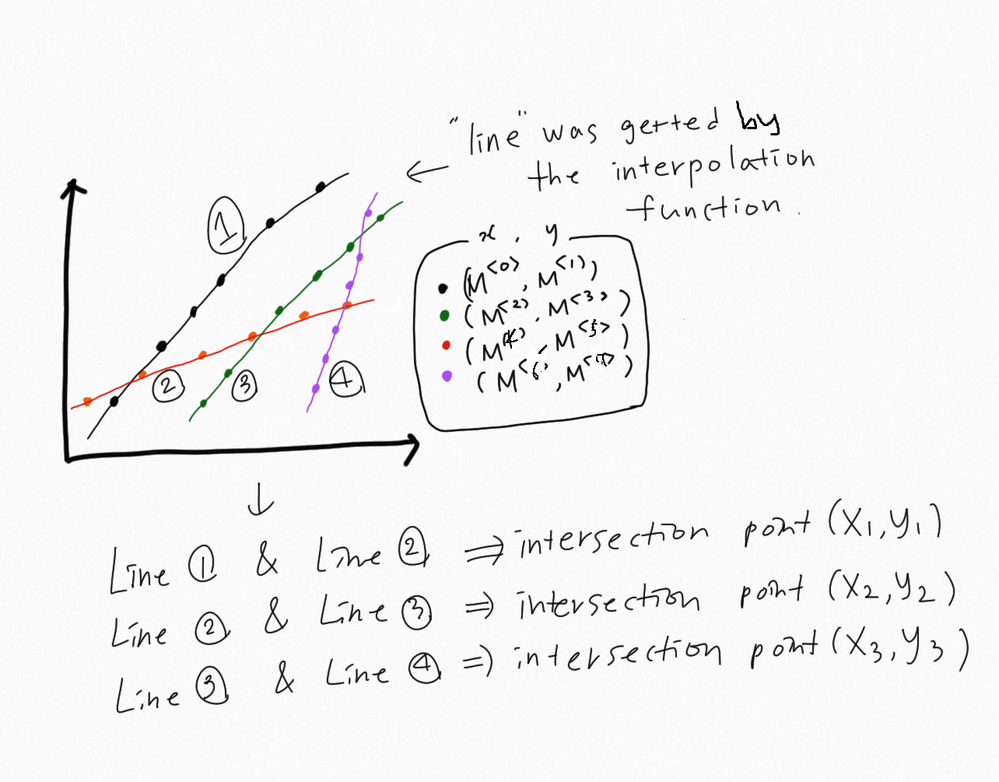 "line" was gerted by
the interpolation
function.
x, y
(M<0>, M<1>)
(M<2>, M<3>)
(M , M<5>)
(M , M )
①
②
③
④
Line ① & Line ② ⇒ intersection point (X1, y1)
Line ② & Line ③ ⇒ intersection point (X2, y2)
Line ③ & Line ④ ⇒ intersection point (X3, y3)